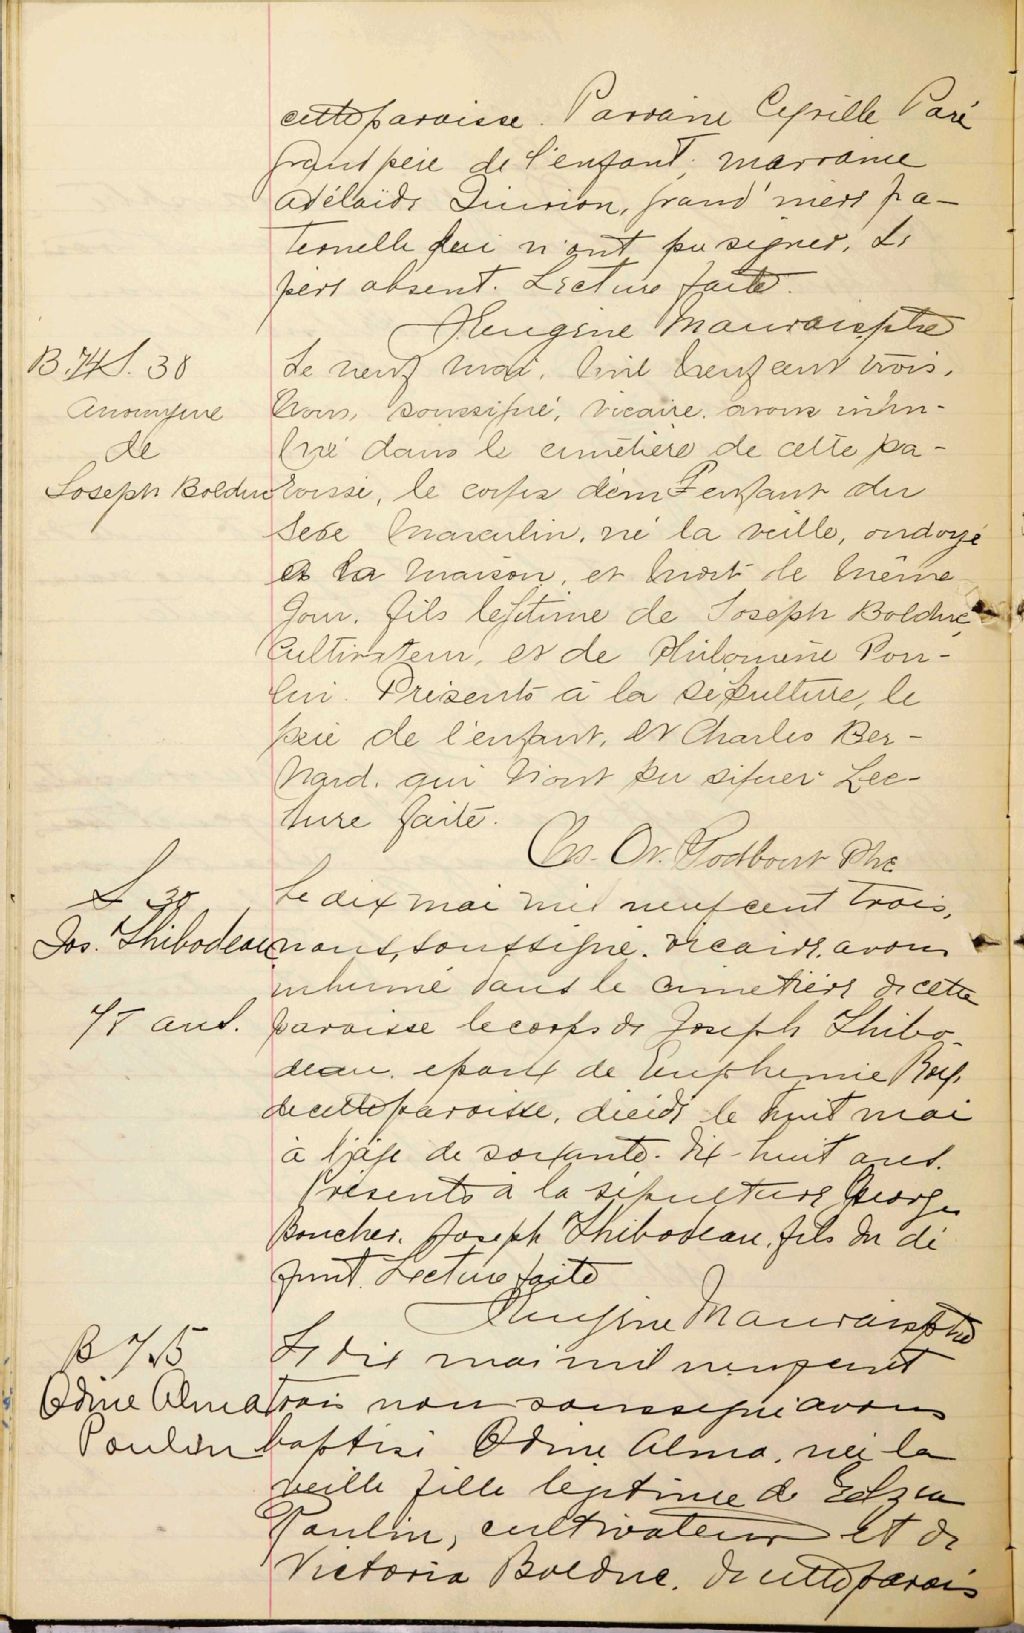 cette paroisse. Parraine Cyrille Paré
grand père de l'enfant, marraine
Adélaïde Quirion, grand'mère pa-
ternelle qui n'ont pu signer. Le
père absent. Lecture faite.
J. Eugène Mauvais ptre
B. 74 S. 38
Anonyme
de
Joseph Bolduc
Le neuf mai, mil neuf cent trois,
nous, soussigné, vicaire, avons inhu-
mé dans le cimetière de cette pa-
roisse, le corps d'un enfant du
sexe masculin, né la veille, ondoyé
à la maison, et mort le même
jour, fils légitime de Joseph Bolduc,
cultivateur, et de Philomène Pou-
lin. Présents à la sépulture, le
père de l'enfant, et Charles Ber-
nard, qui n'ont pu signer Lec-
ture faite.
Chs. Ov. Godbout Ptre
S 38
Jos. Thibodeau
78 ans.
Le dix mai mil neuf cent trois,
nous, soussigné, vicaire, avons
inhumé dans le cimetière de cette
paroisse le corps de Joseph Thibo-
deau, époux de Euphemie Roy,
de cette paroisse, décédé le huit mai
à l'âge de soixante-dix-huit ans.
Présents à la sépulture George
Boucher, Joseph Thibodeau, fils du dé
funt. Lecture faite
J. Eugène Mauvais ptre
B 75
Odine Alma
Poulin
Le dix mai mil neuf cent
trois nous soussigné avons
baptisé Odine Alma, née la
veille fille légitime de
Poulin, cultivateur et de
Victoria Bolduc, de cette parois